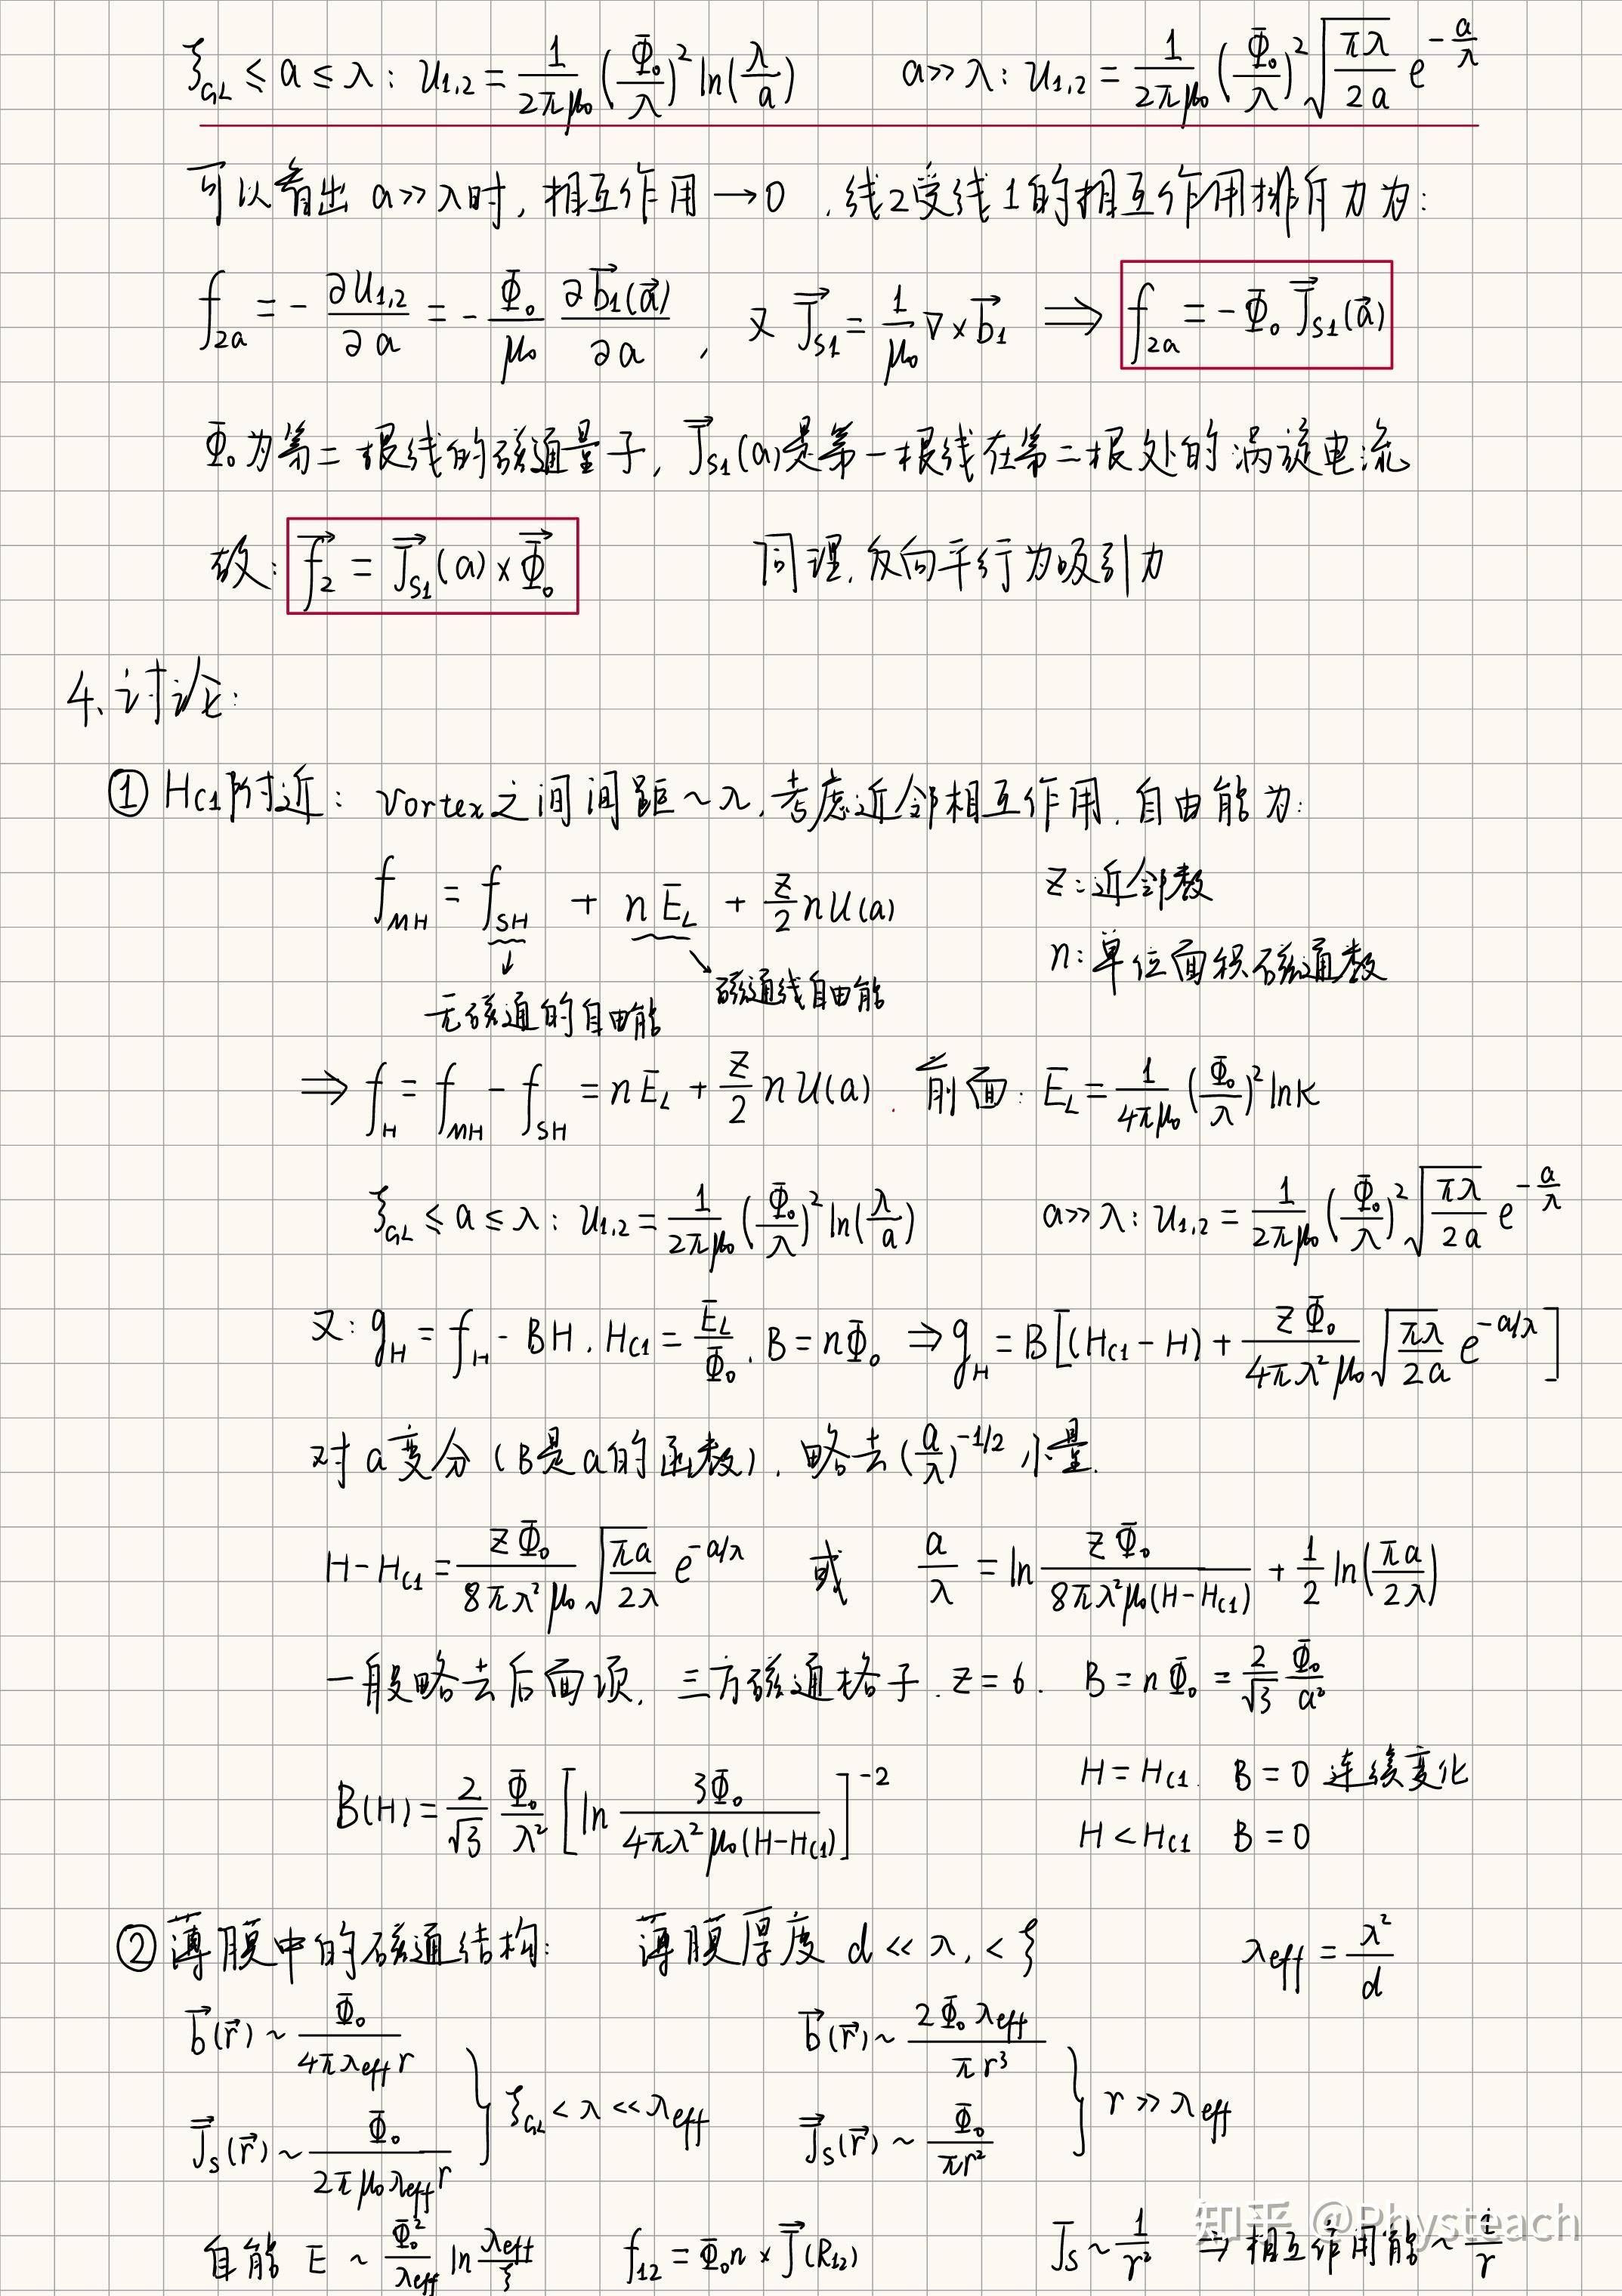 ξ_GL ≤ a ≤ λ: U_{1,2} = \frac{1}{2πμ₀} (\frac{Φ₀}{λ})² ln(\frac{λ}{a})    a >> λ: U_{1,2} = \frac{1}{2πμ₀} (\frac{Φ₀}{λ})² \sqrt{\frac{πλ}{2a}} e^{-\frac{a}{λ}}
可以看出 a >> λ时, 相互作用 → 0 , 线2受线1的相互作用排斥力为:
f_{2a} = - \frac{∂U_{1,2}}{∂a} = - \frac{Φ₀}{μ₀} \frac{∂\vec{b_1}(\vec{a})}{∂a} , 又 \vec{J_{S1}} = \frac{1}{μ₀} ∇ × \vec{b_1} ⟹ f_{2a} = - Φ₀ \vec{J_{S1}}(\vec{a})
Φ₀为第二根线的磁通量子, \vec{J_{S1}}(a)是第一根线在第二根处的涡旋电流
故: \vec{f_2} = \vec{J_{S1}}(a) × \vec{Φ₀}    同理, 反向平行为吸引力
4、讨论:
① H_{C1}附近: vortex之间间距 ~ λ, 考虑近邻相互作用, 自由能为:
f_{MH} = f_{SH} + n E_L + \frac{z}{2} n U(a)    z: 近邻数
n: 单位面积磁通数
无磁通的自由能    磁通线自由能
⟹ f_H = f_{MH} - f_{SH} = n E_L + \frac{z}{2} n U(a) . 前面: E_L = \frac{1}{4πμ₀} (\frac{Φ₀}{λ})² ln κ
ξ_GL ≤ a ≤ λ: U_{1,2} = \frac{1}{2πμ₀} (\frac{Φ₀}{λ})² ln(\frac{λ}{a})    a >> λ: U_{1,2} = \frac{1}{2πμ₀} (\frac{Φ₀}{λ})² \sqrt{\frac{πλ}{2a}} e^{-\frac{a}{λ}}
又: g_H = f_H - BH . H_{C1} = \frac{E_L}{Φ₀} . B = nΦ₀ ⟹ g_H = B[(H_{C1} - H) + \frac{zΦ₀}{4πλ²μ₀} \sqrt{\frac{πλ}{2a}} e^{-a/λ}]
对 a 变分 (B是a的函数), 略去 (\frac{a}{λ})^{-1/2} 小量.
H - H_{C1} = \frac{zΦ₀}{8πλ²μ₀} \sqrt{\frac{πa}{2λ}} e^{-a/λ}    或    \frac{a}{λ} = ln \frac{zΦ₀}{8πλ²μ₀(H-H_{C1})} + \frac{1}{2} ln(\frac{πa}{2λ})
一般略去后面项, 三方磁通格子 . z = 6 . B = nΦ₀ = \frac{2}{\sqrt{3}} \frac{Φ₀}{a²}
B(H) = \frac{2}{\sqrt{3}} \frac{Φ₀}{λ²} [ln \frac{3Φ₀}{4πλ²μ₀(H-H_{C1})}]^{-2}    H = H_{C1} . B = 0 连续变化
H < H_{C1} B = 0
② 薄膜中的磁通结构:    薄膜厚度 d << λ, < ξ    λ_{eff} = \frac{λ²}{d}
\vec{b}(\vec{r}) ~ \frac{Φ₀}{4πλ_{eff} r}    \vec{b}(\vec{r}) ~ \frac{2Φ₀λ_{eff}}{πr³}
ξ_GL < λ << λ_{eff}    r >> λ_{eff}
\vec{J_S}(\vec{r}) ~ \frac{Φ₀}{2πμ₀λ_{eff} r}    \vec{J_S}(\vec{r}) ~ \frac{Φ₀}{πr²}
自能 E ~ \frac{Φ₀²}{λ_{eff}} ln \frac{λ_{eff}}{ξ}    f_{12} = Φ₀ n × \vec{J}(R_{12})    J_S ~ \frac{1}{r²} ⇒ 相互作用能 ~ \frac{1}{r}
知乎 @Physteach